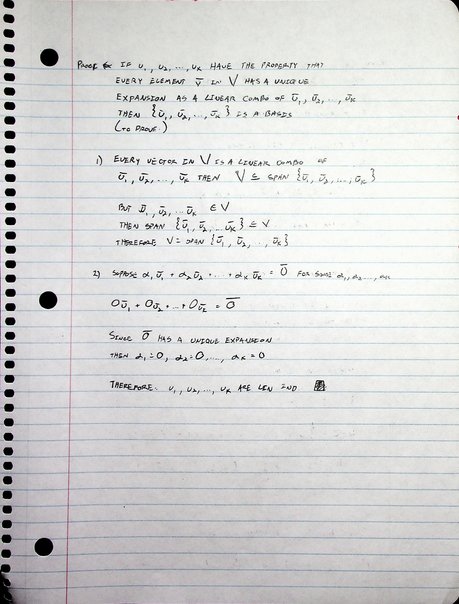 PROOF IF u₁, u₂, ..., uₖ HAVE THE PROPERTY THAT
EVERY ELEMENT v̄ IN V HAS A UNIQUE
EXPANSION AS A LINEAR COMBO OF ū₁, ū₂, ..., ūₖ
THEN {ū₁, ū₂, ..., ūₖ} IS A BASIS
(TO PROVE)
1) EVERY VECTOR IN V IS A LINEAR COMBO OF
ū₁, ū₂, ..., ūₖ THEN V ⊆ SPAN {ū₁, ū₂, ..., ūₖ}
BUT ū₁, ū₂, ... ūₖ ∈ V
THEN SPAN {ū₁, ū₂, ... ūₖ} ⊆ V
THEREFORE V = SPAN {ū₁, ū₂, .., ūₖ}
2) SUPPOSE α₁ū₁ + α₂ū₂ + ... + αₖūₖ = 0̄ FOR SOME α₁, α₂, ..., αₖ
0ū₁ + 0ū₂ + ... + 0ūₖ = 0̄
SINCE 0̄ HAS A UNIQUE EXPANSION
THEN α₁=0, α₂=0, ..., αₖ=0
THEREFORE. u₁, u₂, ..., uₖ ARE LIN IND